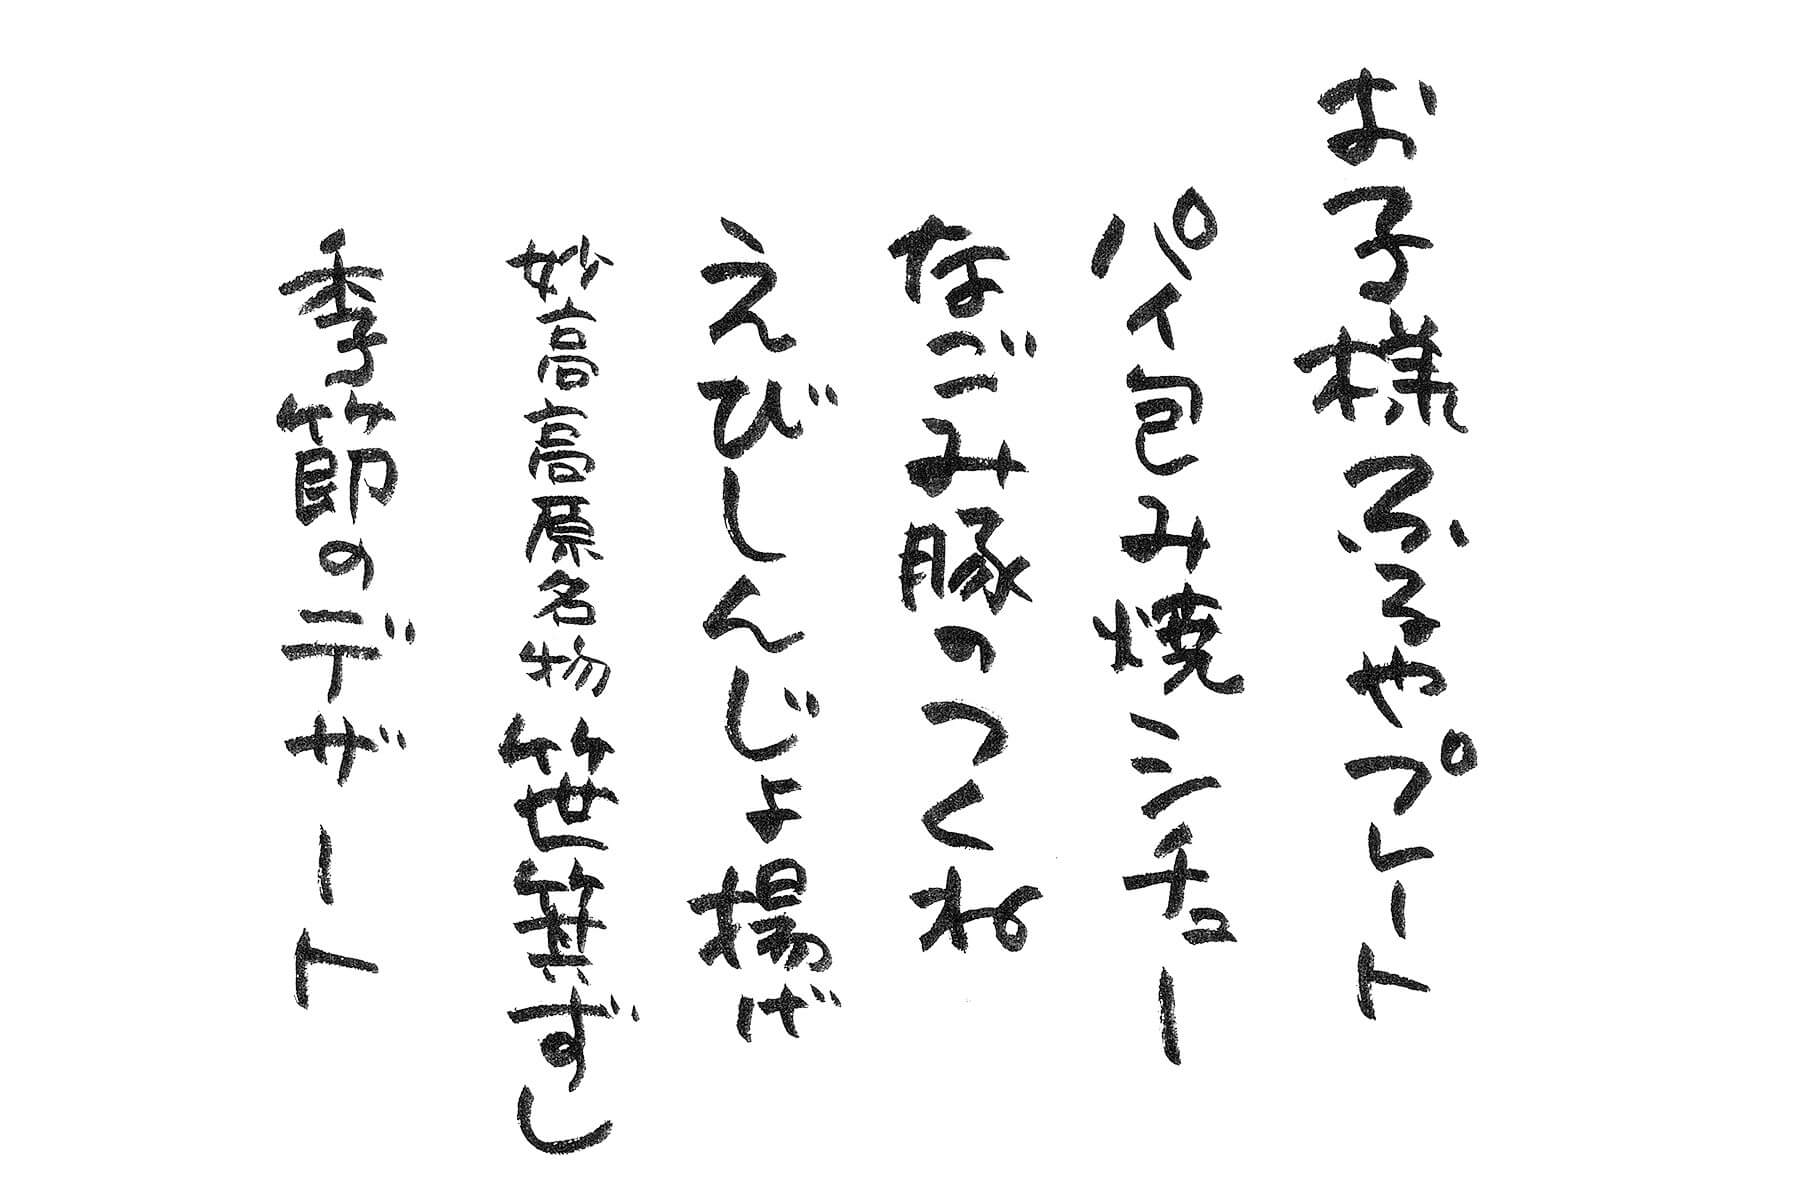 お子様ふるやプレート
パイ包み焼シチュー
なごみ豚のつくね
えびしんじょ揚げ
妙高高原名物笹箕ずし
季節のデザート